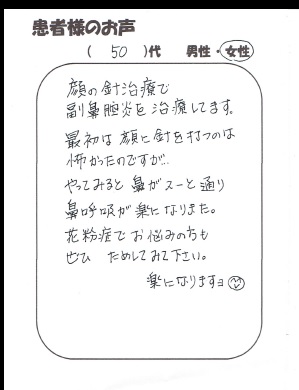 患者様のお声
( 50 )代 男性・女性
顔の針治療で
副鼻腔炎を治療してます。
最初は顔に針を打つのは
怖かったのですが…
やってみると鼻がスーと通り
鼻呼吸が楽になりました。
花粉症でお悩みの方も
ぜひ ためしてみて下さい。
楽になりますヨ